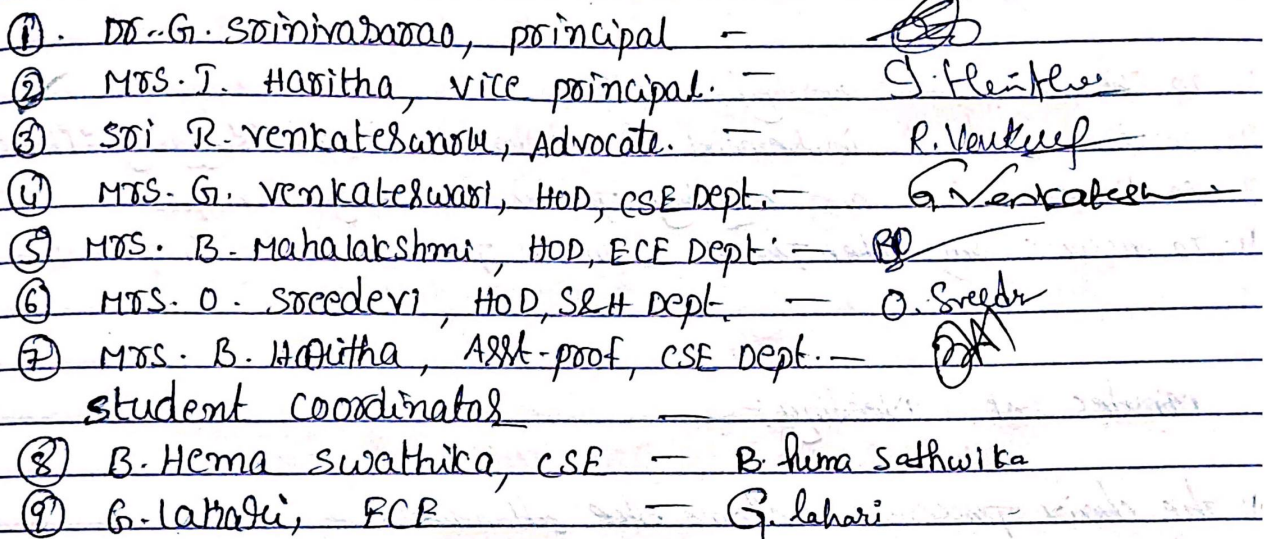 ① . Dr. G. Srinivasarao, principal -
② Mrs. T. Haritha, vice principal. - J. Haritha
③ Sri R. Venkateswarlu, Advocate. -
④ Mrs. G. Venkateswari, HOD, CSE Dept. - G Venkatesh
⑤ Mrs. B. Mahalakshmi, HOD, ECE Dept. -
⑥ Mrs. O. Sreedevi, HOD, S&H Dept. - O. Sreedv
⑦ Mrs. B. Haritha, Asst-prof, CSE Dept. -
student coordinators -
⑧ B. Hema Swathika, CSE - B. huma Sathwika
⑨ G. Lahari, ECE - G. lahari